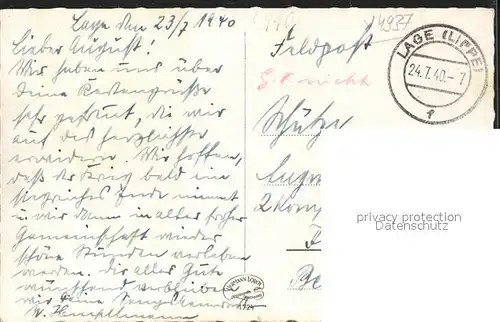 Lage den 23/7 1940
Lieber August!
Wir haben uns über
Deine Kartengrüße
sehr gefreut, die wir
auf das herzlichste
erwidern. Wir hoffen,
daß der Krieg bald ein
siegreiches Ende nimmt
u. wir dann in alter froher
Gemeinschaft wieder
schöne Stunden verleben
werden. Dir alles Gute
wünschend verbleiben
wir Deine Sangeskameraden
W.
14937
Feldpost
LAGE (LIPPE)
24.7.40.-7
1
Schütze
2 Komp
privacy protection
Datenschutz